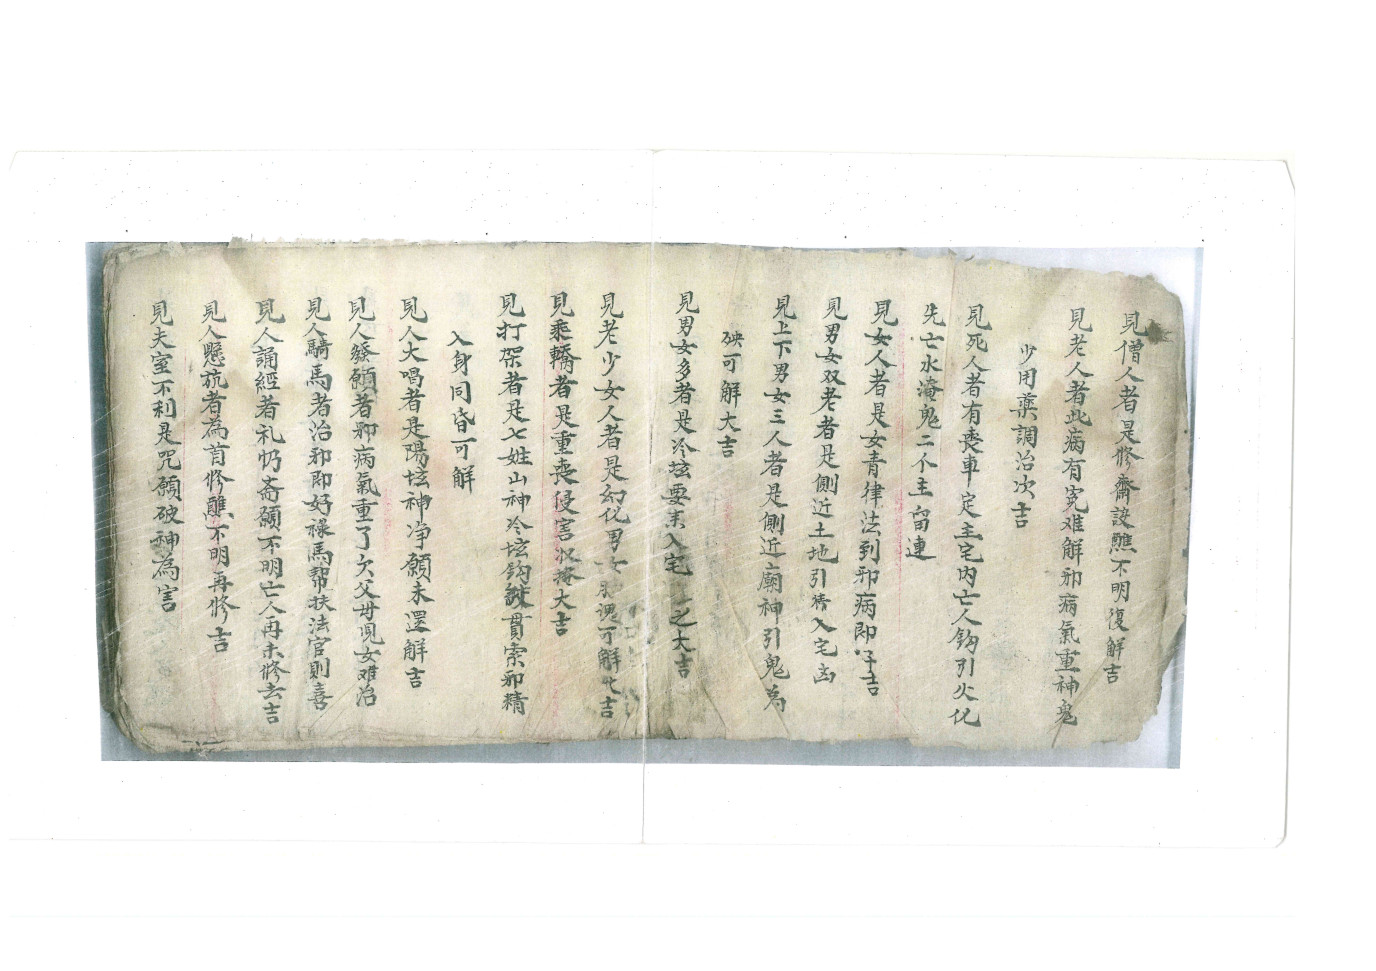 見僧人者是修齋設醮不明復解吉
見老人者此病有寃难解邪病氣重神鬼
少用藥調治次吉
見死人者有喪車定主宅内亡人鈎引火化
先亡水淹鬼二不主留連
見女人者是女青律法到邪病即好吉
見男女双老者是側近土地引精入宅凶
見上下男女三人者是側近廟神引鬼為
殃可解大吉
見男女多者是冷坛要未入宅 之大吉
見老少女人者是幻化男女 魂可解 吉
見乘轎者是重喪侵害収掩大吉
見打架者是七姓山神冷坛鈎 貫索邪精
入身同昏可解
見人大唱者是陽坛神净願未還解吉
見人發願者邪病氣重了欠父母兒女难治
見人騎馬者治邪即好祿馬幫扶法官則喜
見人誦經者礼忏斋願不明亡人再未修去吉
見人懸旐者為首修醮不明再修吉
見夫室不利是咒願破神為害